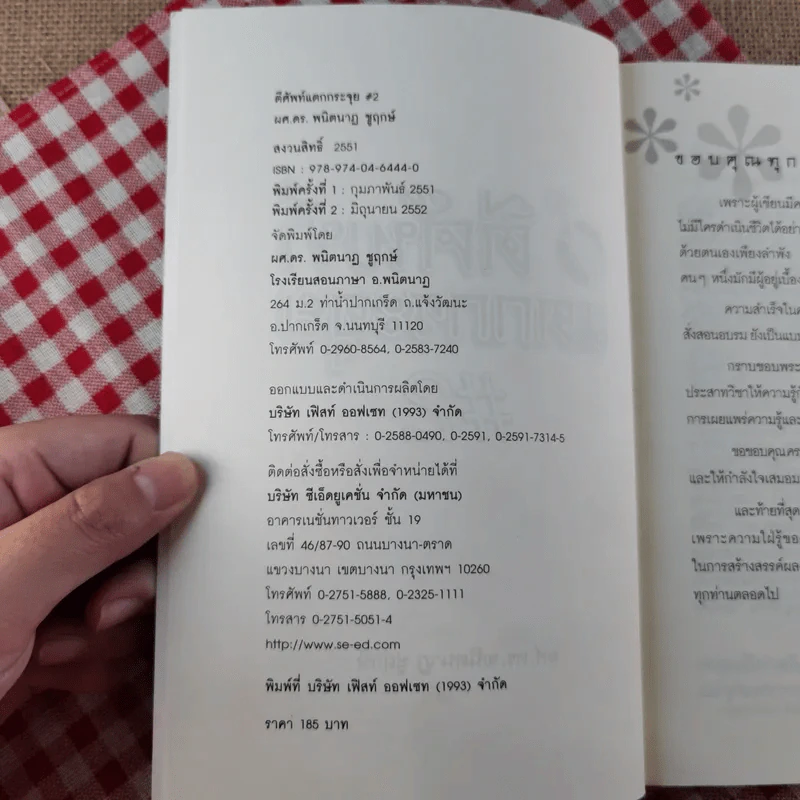 ตีศัพท์แตกกระจุย #2
ผศ.ดร. พนิตนาฏ ชูฤกษ์
สงวนสิทธิ์ 2551
ISBN : 978-974-04-6444-0
พิมพ์ครั้งที่ 1 : กุมภาพันธ์ 2551
พิมพ์ครั้งที่ 2 : มิถุนายน 2552
จัดพิมพ์โดย
ผศ.ดร. พนิตนาฏ ชูฤกษ์
โรงเรียนสอนภาษา อ.พนิตนาฏ
264 ม.2 ท่าน้ำปากเกร็ด ถ.แจ้งวัฒนะ
อ.ปากเกร็ด จ.นนทบุรี 11120
โทรศัพท์ 0-2960-8564, 0-2583-7240
ออกแบบและดำเนินการผลิตโดย
บริษัท เฟิสท์ ออฟเซท (1993) จำกัด
โทรศัพท์/โทรสาร : 0-2588-0490, 0-2591, 0-2591-7314-5
ติดต่อสั่งซื้อหรือสั่งเพื่อจำหน่ายได้ที่
บริษัท ซีเอ็ดยูเคชั่น จำกัด (มหาชน)
อาคารเนชั่นทาวเวอร์ ชั้น 19
เลขที่ 46/87-90 ถนนบางนา-ตราด
แขวงบางนา เขตบางนา กรุงเทพฯ 10260
โทรศัพท์ 0-2751-5888, 0-2325-1111
โทรสาร 0-2751-5051-4
http://www.se-ed.com
พิมพ์ที่ บริษัท เฟิสท์ ออฟเซท (1993) จำกัด
ราคา 185 บาท
ขอบคุณทุก
เพราะผู้เขียนมี
ไม่มีใครดำเนินชีวิตได้อย่า
ด้วยตนเองเพียงลำพัง
คนๆ หนึ่งมักมีผู้อยู่เบื้อง
ความสำเร็จใน
สั่งสอนอบรม ยังเป็นแบบ
กราบขอบพระ
ประสาทวิชาให้ความรู้
การเผยแพร่ความรู้และ
ขอขอบคุณคร
และให้กำลังใจเสมอม
และท้ายที่สุด
เพราะความใฝ่รู้ขอ
ในการสร้างสรรค์ผล
ทุกท่านตลอดไป